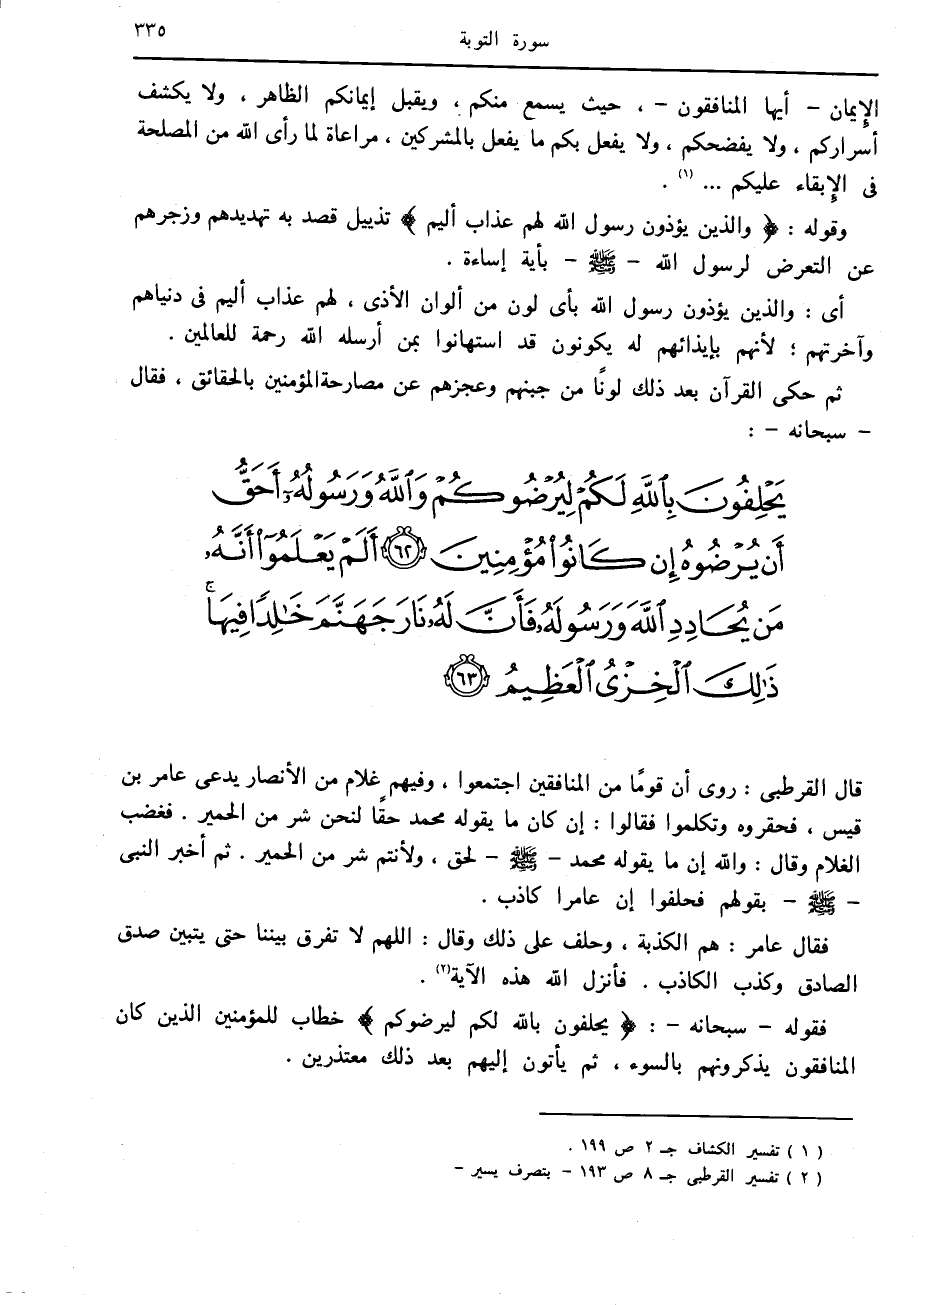 سورة التوبة ٣٣٥
الإيمان – أيها المنافقون – ، حيث يسمع منكم ، ويقبل إيمانكم الظاهر ، ولا يكشف
أسراركم ، ولا يفضحكم ، ولا يفعل بكم ما يفعل بالمشركين ، مراعاة لما رأى الله من المصلحة
فى الإبقاء عليكم ... (١) .
وقوله : ﴿ والذين يؤذون رسول الله لهم عذاب أليم ﴾ تذييل قصد به تهديدهم وزجرهم
عن التعرض لرسول الله – ﷺ – بأية إساءة .
أى : والذين يؤذون رسول الله بأى لون من ألوان الأذى ، لهم عذاب أليم فى دنياهم
وآخرتهم ؛ لأنهم بإيذائهم له يكونون قد استهانوا بمن أرسله الله رحمة للعالمين .
ثم حكى القرآن بعد ذلك لونًا من جبنهم وعجزهم عن مصارحةالمؤمنين بالحقائق ، فقال
– سبحانه – :
يَحْلِفُونَ بِٱللَّهِ لَكُمْ لِيُرْضُوكُمْ وَٱللَّهُ وَرَسُولُهُۥٓ أَحَقُّ
أَن يُرْضُوهُ إِن كَانُوا۟ مُؤْمِنِينَ ٦٢ أَلَمْ يَعْلَمُوٓا۟ أَنَّهُۥ
مَن يُحَادِدِ ٱللَّهَ وَرَسُولَهُۥ فَأَنَّ لَهُۥ نَارَ جَهَنَّمَ خَٰلِدًا فِيهَا ۚ
ذَٰلِكَ ٱلْخِزْىُ ٱلْعَظِيمُ ٦٣
قال القرطبى : روى أن قومًا من المنافقين اجتمعوا ، وفيهم غلام من الأنصار يدعى عامر بن
قيس ، فحقروه وتكلموا فقالوا : إن كان ما يقوله محمد حقًا لنحن شر من الحمير . فغضب
الغلام وقال : والله إن ما يقوله محمد – ﷺ – لحق ، ولأنتم شر من الحمير . ثم أخبر النبى
– ﷺ – بقولهم فحلفوا إن عامرا كاذب .
فقال عامر : هم الكذبة ، وحلف على ذلك وقال : اللهم لا تفرق بيننا حتى يتبين صدق
الصادق وكذب الكاذب . فأنزل الله هذه الآية(٢) .
فقوله – سبحانه – : ﴿ يحلفون بالله لكم ليرضوكم ﴾ خطاب للمؤمنين الذين كان
المنافقون يذكرونهم بالسوء ، ثم يأتون إليهم بعد ذلك معتذرين .
( ١ ) تفسير الكشاف جـ ٢ ص ١٩٩ .
( ٢ ) تفسير القرطبى جـ ٨ ص ١٩٣ – بتصرف يسير –